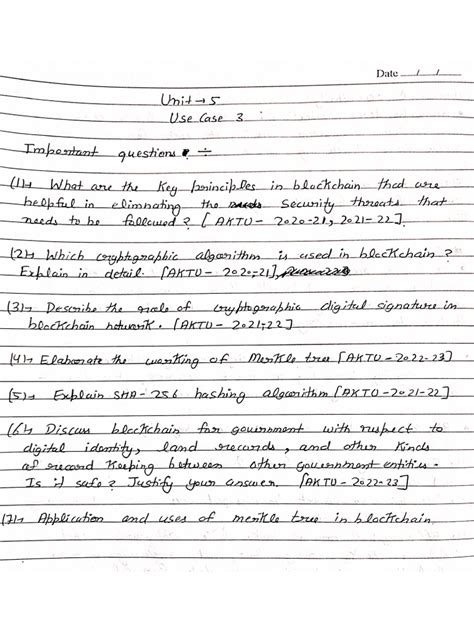 Date / /
Unit → 5
Use Case 3
Important questions :-
(1)→ What are the key principles in blockchain that are
helpful in elimnating the security threats that
needs to be followed ? [AKTU - 2020-21, 2021-22].
(2)→ Which cryptographic algorithm is used in blockchain ?
Explain in detail. [AKTU - 2020-21]
(3)→ Describe the role of cryptographic digital signature in
blockchain network. [AKTU - 2021-22]
(4)→ Elaborate the working of Merkle tree [AKTU - 2022-23]
(5)→ Explain SHA-256 hashing algorithm [AKTU - 2021-22]
(6)→ Discuss blockchain for government with respect to
digital identity, land records, and other kinds
of record keeping between other government entities.
Is it safe ? Justify your answer. [AKTU - 2022-23]
(7)→ Application and uses of merkle tree in blockchain.